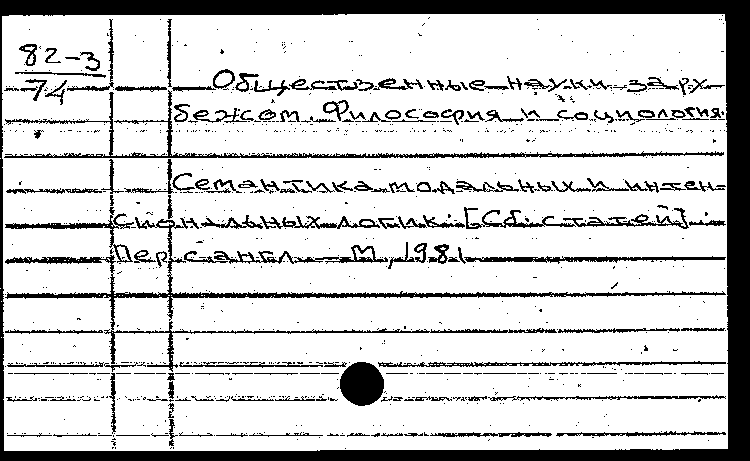 82-3
74
Общественные науки за ру
бежом. Философия и социология.
Семантика модальных и интен=
сиональных логик: [Сб. статей].
Пер. с англ. — М., 1981